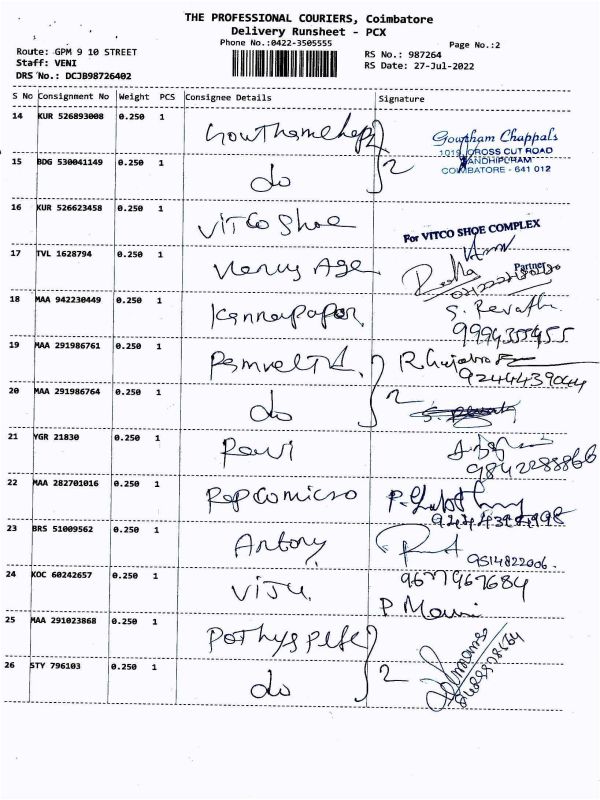 THE PROFESSIONAL COURIERS, Coimbatore
Delivery Runsheet - PCX
Phone No.:0422-3505555
Page No.:2
Route: GPM 9 10 STREET
Staff: VENI
DRS No.: DCJB98726402
RS No.: 987264
RS Date: 27-Jul-2022
S No Consignment No Weight PCS Consignee Details Signature
14 KUR 526893008 0.250 1
Gowtham Chappals
1019, CROSS CUT ROAD
GANDHIPURAM
COIMBATORE - 641 012
15 BDG 530041149 0.250 1 do 2
16 KUR 526623458 0.250 1 Vitco Shoe
For VITCO SHOE COMPLEX
Partner
17 TVL 1628794 0.250 1
18 MAA 942230449 0.250 1 S. Revathi
19 MAA 291986761 0.250 1
9244439044
20 MAA 291986764 0.250 1 do 2
21 YGR 21830 0.250 1 Ravi
22 MAA 282701016 0.250 1 Repcomicro
23 BRS 51009562 0.250 1 Antony
9514822006.
24 KOC 60242657 0.250 1 Viju. 9677967684
P Mouni
25 MAA 291023868 0.250 1
26 STY 796103 0.250 1 do 2